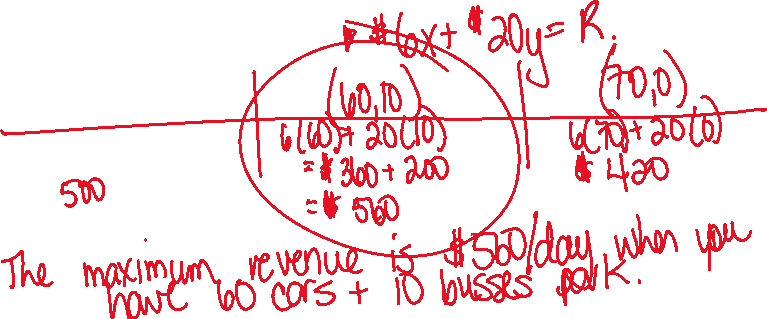 $6x + $20y = R.
(60,10) (70,0)
6(60) + 20(10) 6(70) + 20(0)
= $360 + 200 $420
500 = $560
The maximum revenue is $560/day when you
have 60 cars + 10 busses park.